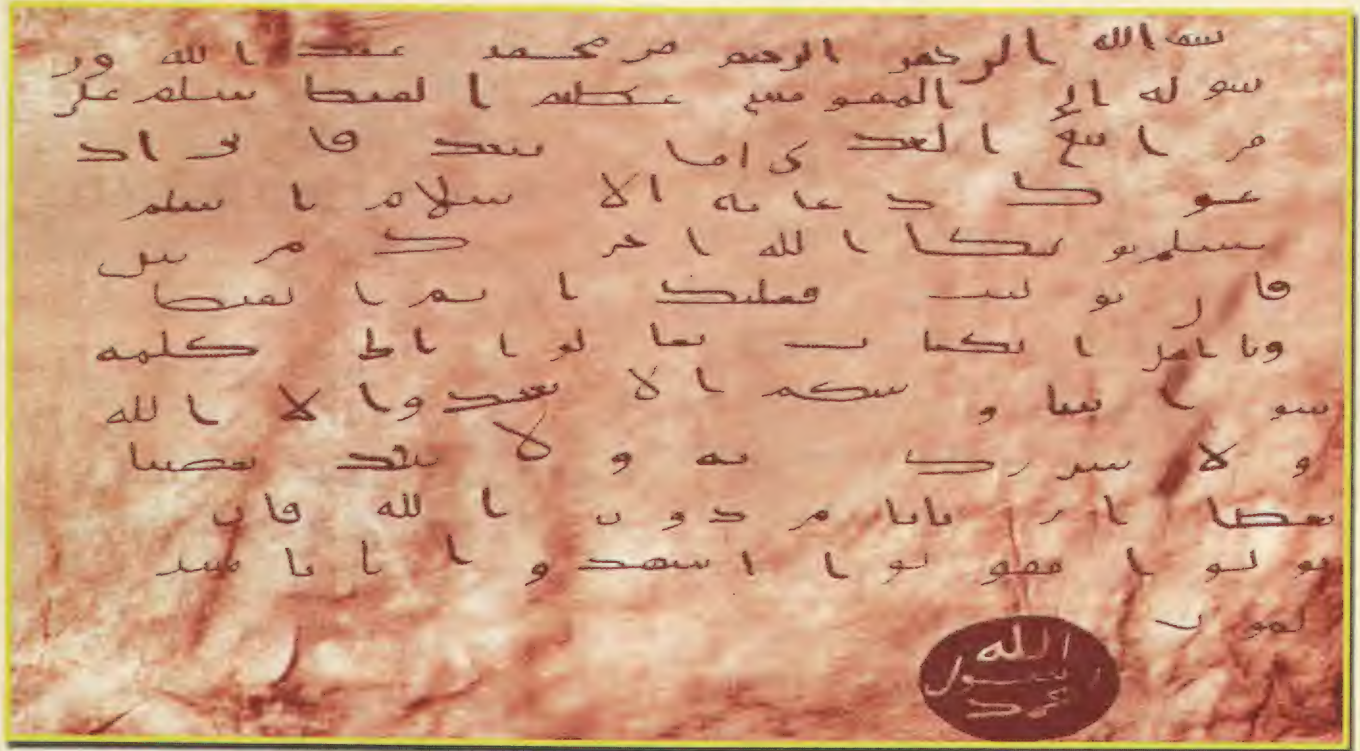 بسم الله الرحمن الرحيم من محمد عبد الله ور
سوله الى المقوقس عظيم القبط سلم على
من اتبع الهدى اما بعد فانى اد
عوك بدعايه الاسلام اسلم
تسلم يوتك الله اجرك مرتين
فان توليت فعليك اثم القبط
ويا اهل الكتاب تعالوا الى كلمه
سوا بيننا و بينكم الا نعبد وا لا الله
و لا نشرك به و لا يتخذ بعضنا
بعضا اربابا من دون الله فان
تولوا فقولوا اشهدوا بانا مسـ
لمون
الله
رسول
محمد